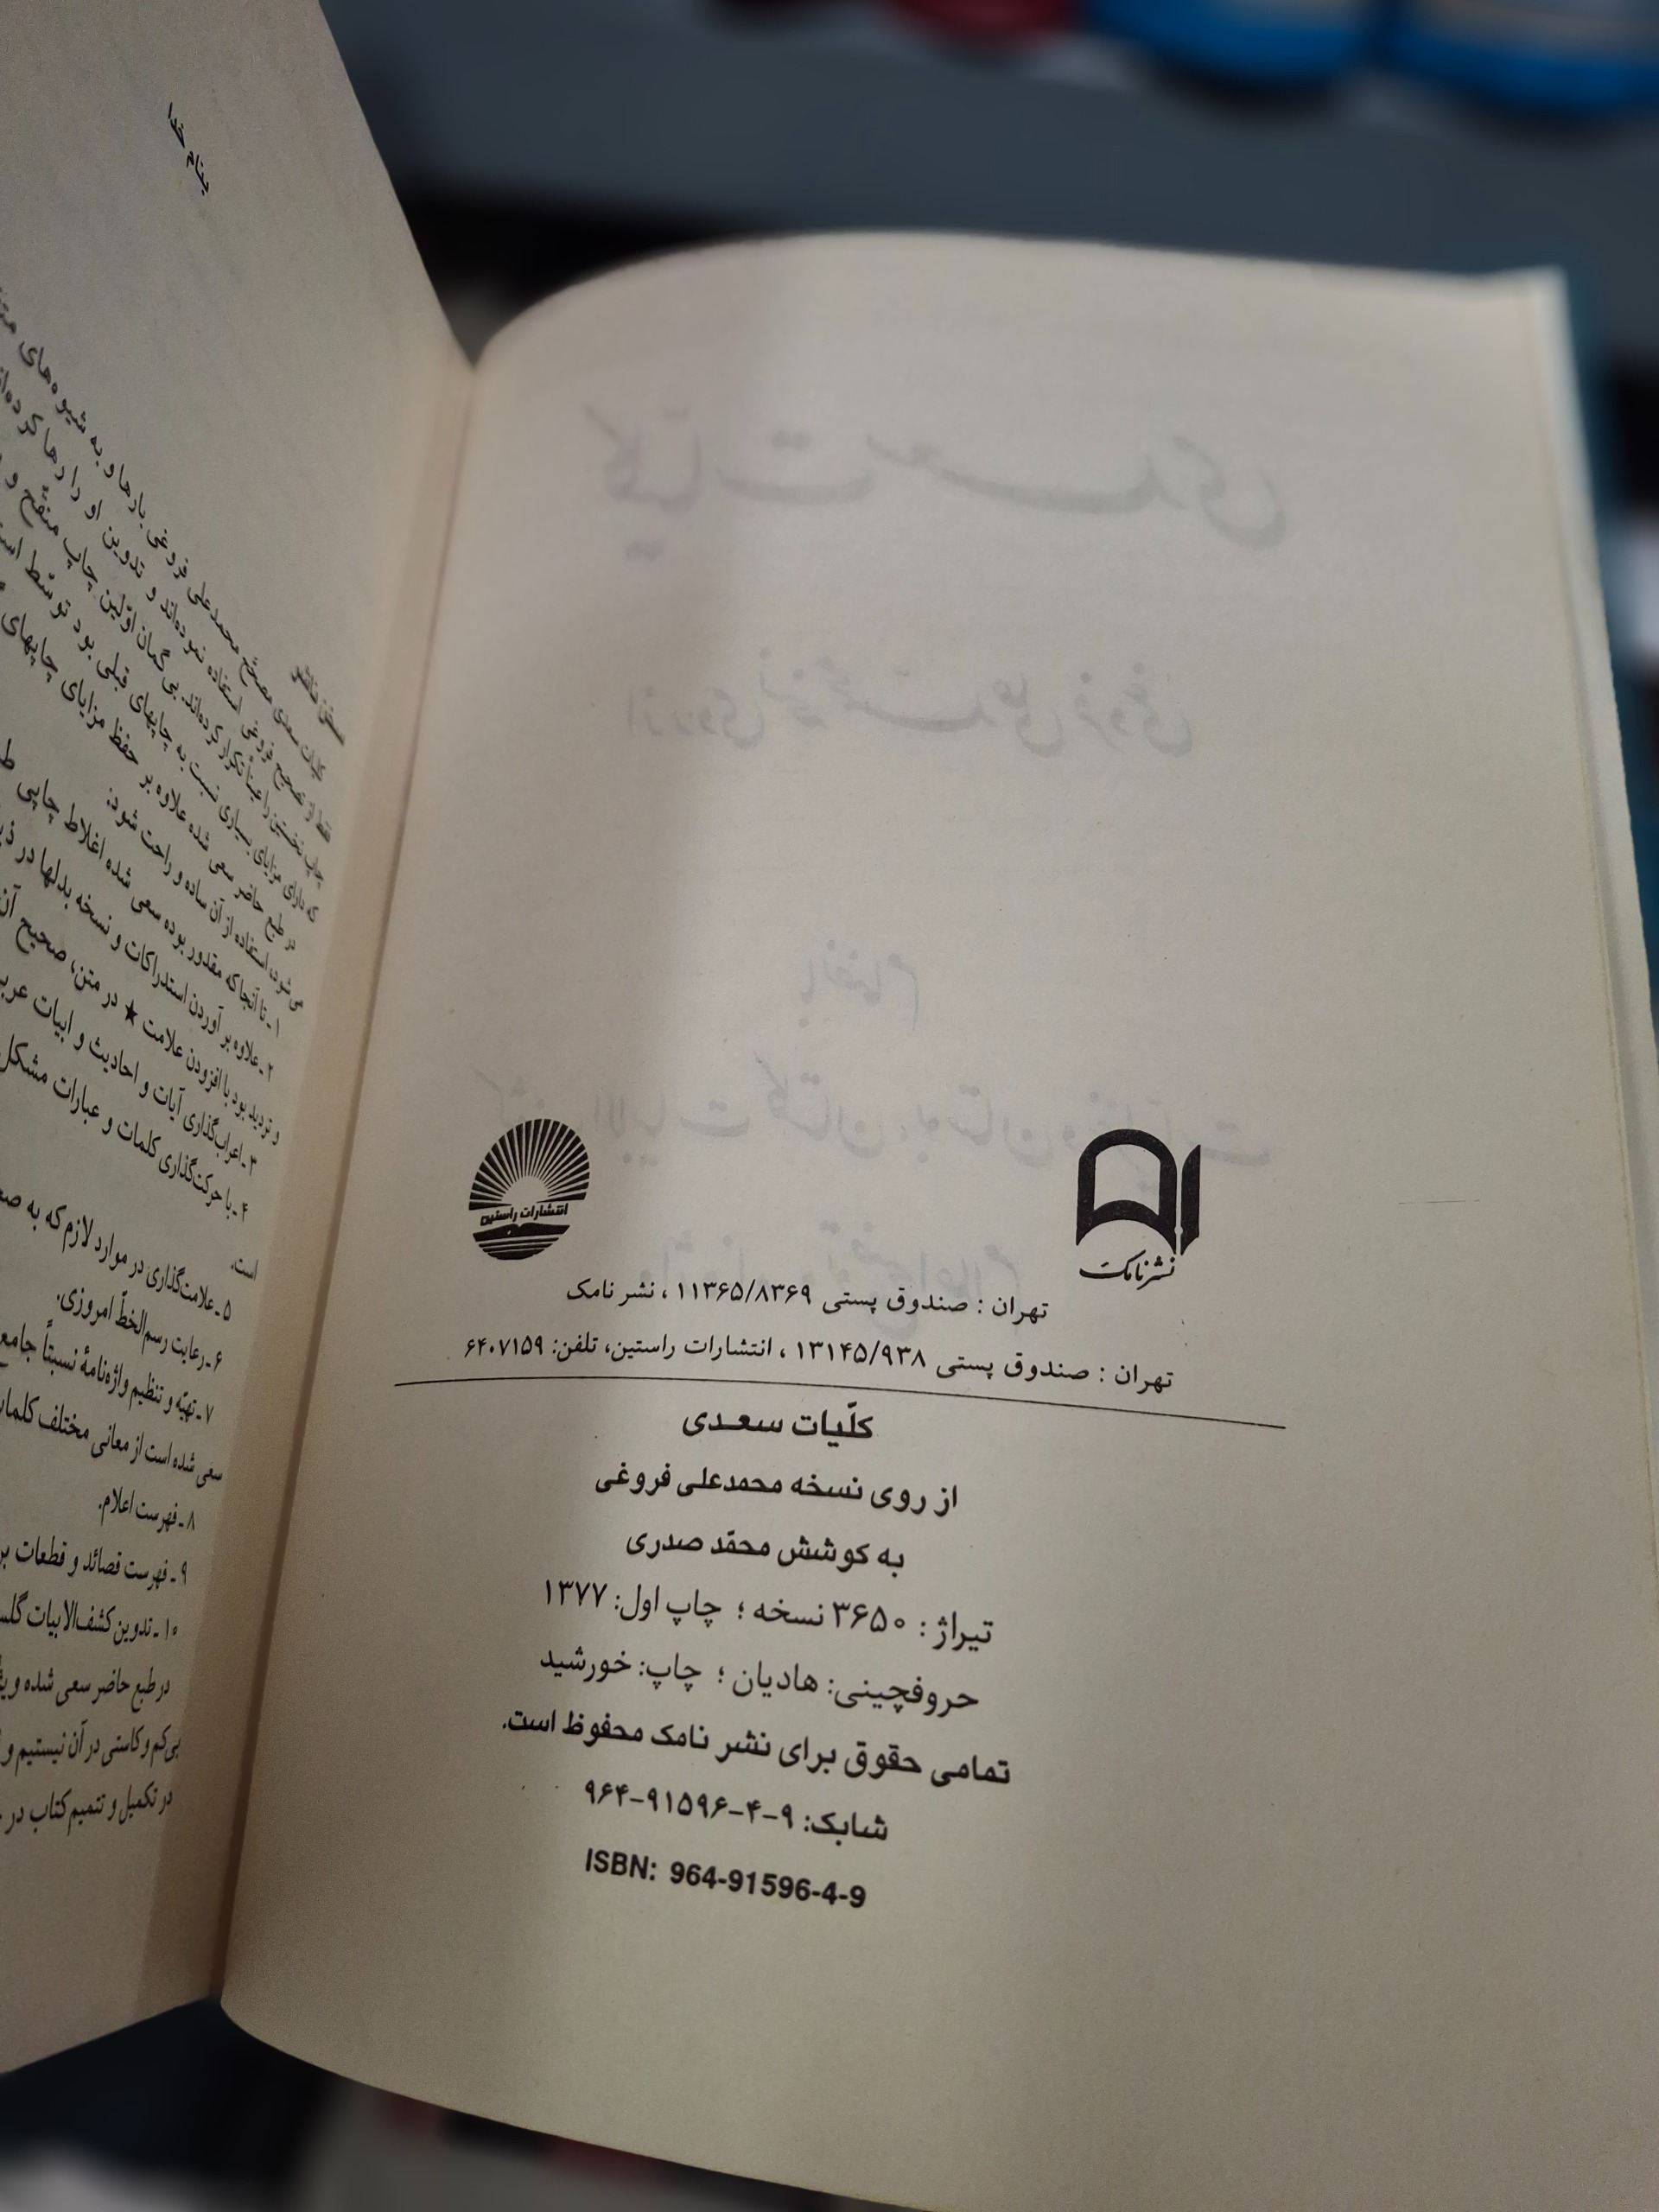 انتشارات راستین
نشر نامک
تهران : صندوق پستی ۱۱۳۶۵/۸۳۶۹ ، نشر نامک
تهران : صندوق پستی ۱۳۱۴۵/۹۳۸ ، انتشارات راستین، تلفن: ۶۴۰۷۱۵۹
کلّیات سعدی
از روی نسخه محمدعلی فروغی
به کوشش محمّد صدری
تیراژ : ۳۶۵۰ نسخه ؛ چاپ اول: ۱۳۷۷
حروفچینی: هادیان ؛ چاپ: خورشید
تمامی حقوق برای نشر نامک محفوظ است.
شابک: ۹-۴-۹۱۵۹۶-۹۶۴
ISBN: 964-91596-4-9
بنام خدا
سخن ناشر
کلیات سعدی مصحّح محمدعلی فروغی بارها و به شیوه‌های
فقط از تصحیح فروغی استفاده نموده‌اند و تدوین او را رها کرده‌اند
چاپ نخستین را عیناً تکرار کرده‌اند. بی گمان اوّلین چاپ منقّح و
که دارای مزایای بسیاری نسبت به چاپهای قبلی بود توسّط
در طبع حاضر سعی شده علاوه بر حفظ مزایای چاپهای
می‌شود، استفاده از آن ساده و راحت شود:
۱ـ تا آنجا که مقدور بوده سعی شده اغلاط چاپی
۲ـ علاوه بر آوردن استدراکات و نسخه بدلها در
و تردید بود با افزودن علامت ★ در متن، صحیح آن
۳ـ اعراب‌گذاری آیات و احادیث و ابیات
۴ـ با حرکت‌گذاری کلمات و عبارات مشکل
است.
۵ـ علامت‌گذاری در موارد لازم که به
۶ـ رعایت رسم‌الخطّ امروزی.
۷ـ تهیّه و تنظیم واژه‌نامهٔ نسبتاً جامع
سعی شده است از معانی مختلف
۸ـ فهرست اعلام.
۹ـ فهرست قصائد و قطعات
۱۰ـ تدوین کشف‌الابیات
در طبع حاضر سعی شده
بی‌کم و کاستی در آن نیستیم و
در تکمیل و تتمیم کتاب در